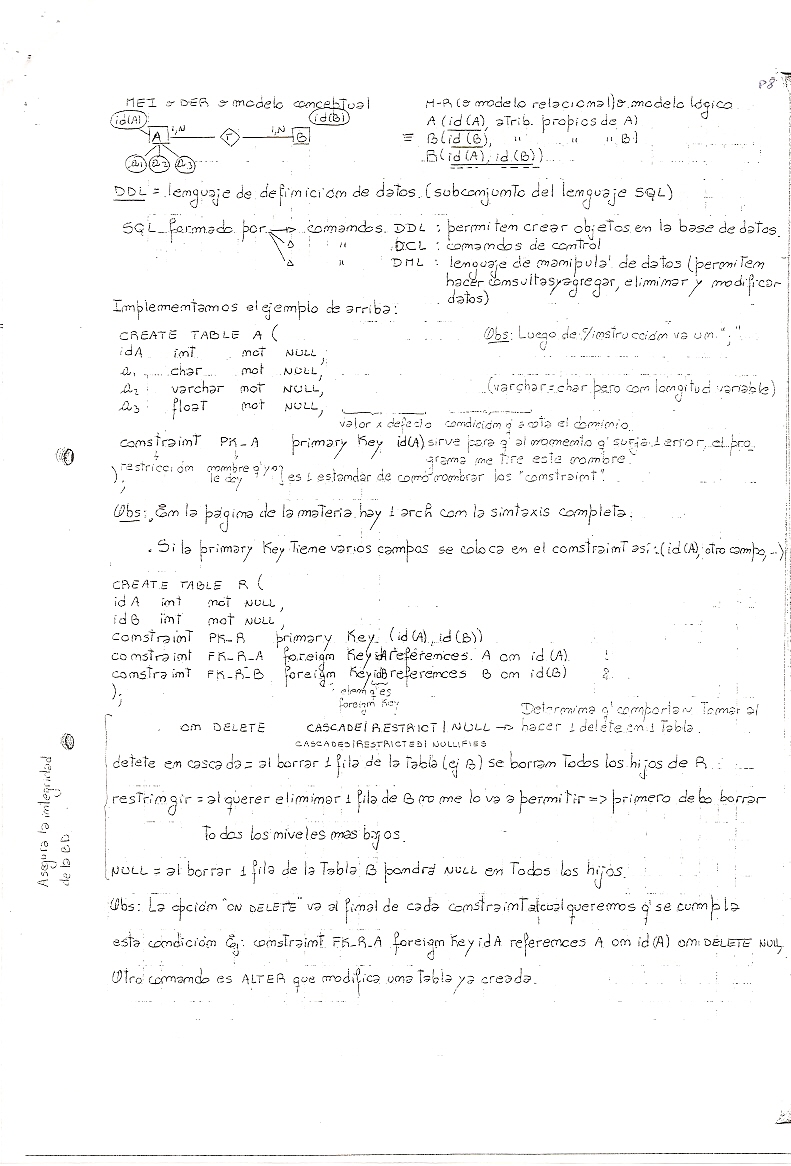 P8
MEI ⇒ DER ⇒ modelo conceptual
id(A) id(B)
A 1,N r 1,N B
a1 a2 a3
M-R (⇒ modelo relacional) ⇒ modelo lógico
A (id(A), atrib. propios de A)
= B (id(B), " " " B)
R (id(A), id(B))
DDL = lenguaje de definición de datos. (subconjunto del lenguaje SQL)
SQL formado por → comandos DDL : permiten crear objetos en la base de datos.
→ " DCL : comandos de control
→ " DML : lenguaje de manipula' de datos (permiten
hacer consultas, agregar, eliminar y modificar
datos)
Implementamos el ejemplo de arriba:
CREATE TABLE A (
Obs: Luego de c/instrucción va un ";"
idA int not NULL,
a1 char not NULL,
a2 varchar not NULL, (varchar = char pero con longitud variable)
a3 float not NULL,
valor x defecto condición q' acota el dominio
constraint PK_A primary Key id(A) sirve para q' al momento q' surja 1 error, el pro
grama me tire este nombre.
restricción nombre q' yo le doy es 1 estandar de como nombrar los "constraint".
);
Obs: . En la página de la materia hay 1 arch con la sintaxis completa.
. Si la primary Key tiene varios campos se coloca en el constraint así: (id(A), otro campo, ...)
CREATE TABLE R (
idA int not NULL,
idB int not NULL,
constraint PK_R primary Key (id(A), id(B))
constraint FK_R_A foreign Key idA references A on id(A)
constraint FK_R_B foreign Key idB references B on id(B)
);
q' es
foreign Key
Determina q' comporta' tomar al
on DELETE CASCADE | RESTRICT | NULL → hacer 1 delete en 1 tabla.
CASCADES | RESTRICTED | NULLIFIES
delete en cascada = al borrar 1 fila de la tabla (ej B) se borran todos los hijos de R.
restringir = al querer eliminar 1 fila de B no me lo va a permitir => primero debo borrar
todos los niveles mas bajos.
NULL = al borrar 1 fila de la tabla B pondrá NULL en todos los hijos.
Asegura la integridad
de la BD
Obs: La opción "ON DELETE" va al final de cada constraint al cual queremos q' se cumpla
esta condición Ej: constraint FK_R_A foreign Key idA references A on id(A) on DELETE NULL
Otro comando es ALTER que modifica una tabla ya creada.